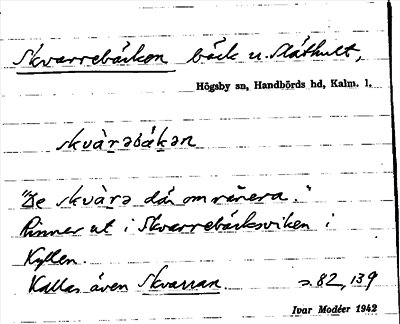 Skvarrebäcken bäck n. Slåthult,
Högsby sn, Handbörds hd, Kalm. l.
skvàrəbäkən
"De skvàrə där om vårera."
Rinner ut i Skvarrebäcksviken i
Kyllen.
Kallas även Skvarran s. 82, 139
Ivar Modéer 1942